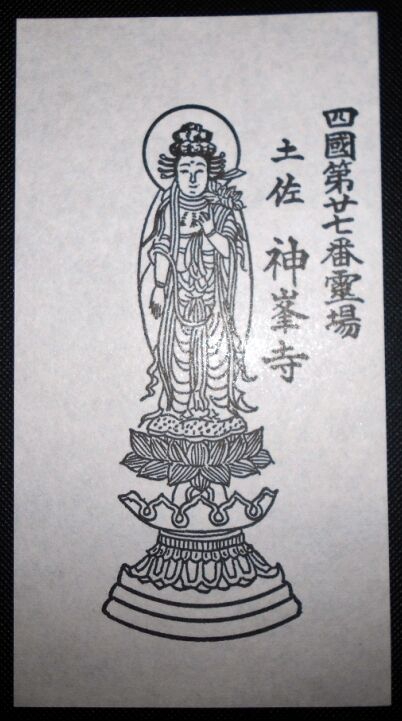 四國第廿七番霊場
土佐 神峯寺